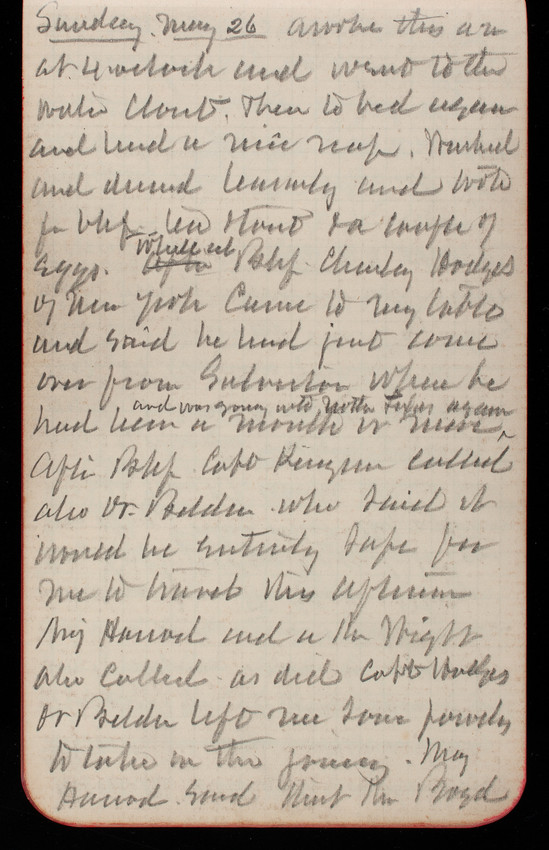 Sunday. May 26 awoke this am
at 4 oclock and went to the
water closet. Then to bed again
and had a nice nap. Washed
and dressed leisurely and
for bkf. tea & a couple of
eggs. While at Bkf Charley Hodges
of New York came to my table
and said he had just come
over from Galveston where he
and was going into Texas again
had been a month or more
After Bkf Capt called
also Dr. Belden who said it
would be entirely safe for
me to travel this afternoon
Maj Harrod and a Mr Wright
also called as did Capt Hodges
Dr Belden left me some powders
to take on the journey. Maj
Harrod said that Mr Boyd